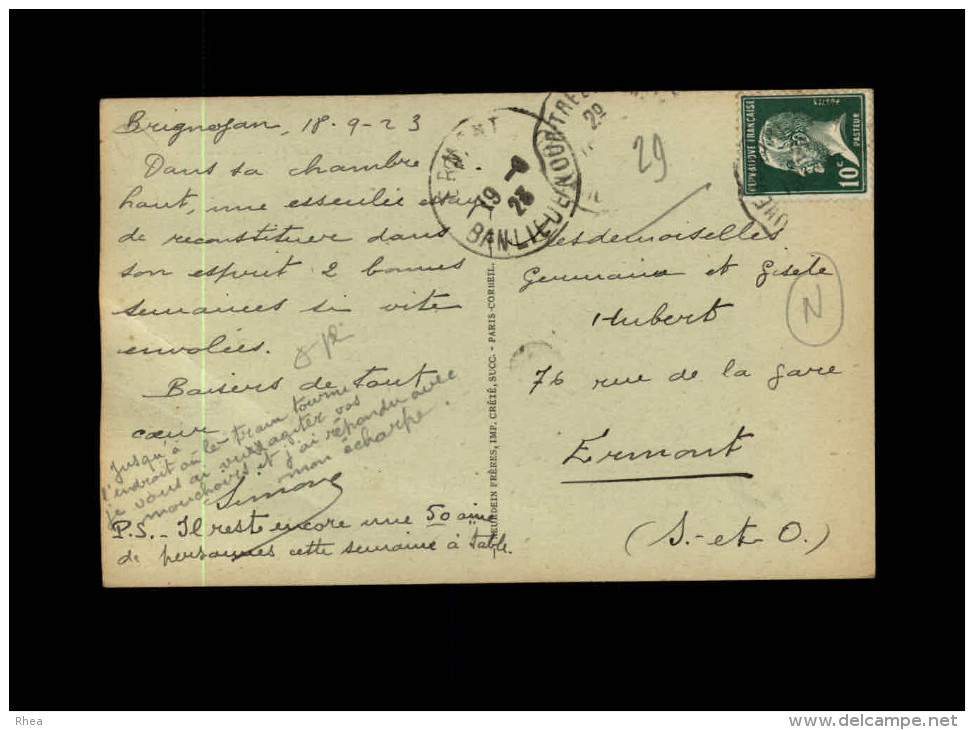 Brignogan, 18-9-23
Dans sa chambre
haut, une esseulée essaie
de reconstituer dans
son esprit 2 bonnes
semaines si vite
envolées.
Baisers de tout
cœur
Simone
Jusqu'à
l'endroit où le train tourne
je vous ai vu agiter vos
mouchoirs et j'ai répondu avec
mon écharpe.
P.S.- Il reste encore une 50aine
de personnes cette semaine à table.
ERMONT
19 -9
23
BANLIEUE
29
RÉPUBLIQUE FRANÇAISE
POSTES
PASTEUR
10c
NEURDEIN FRÈRES, IMP. CRÉTÉ, SUCC. - PARIS-CORBEIL.
Mesdemoiselles
Germaine et Gisèle
Hubert
76 rue de la gare
Ermont
(S.-et-O.)
N
Rhea
www.delcampe.net